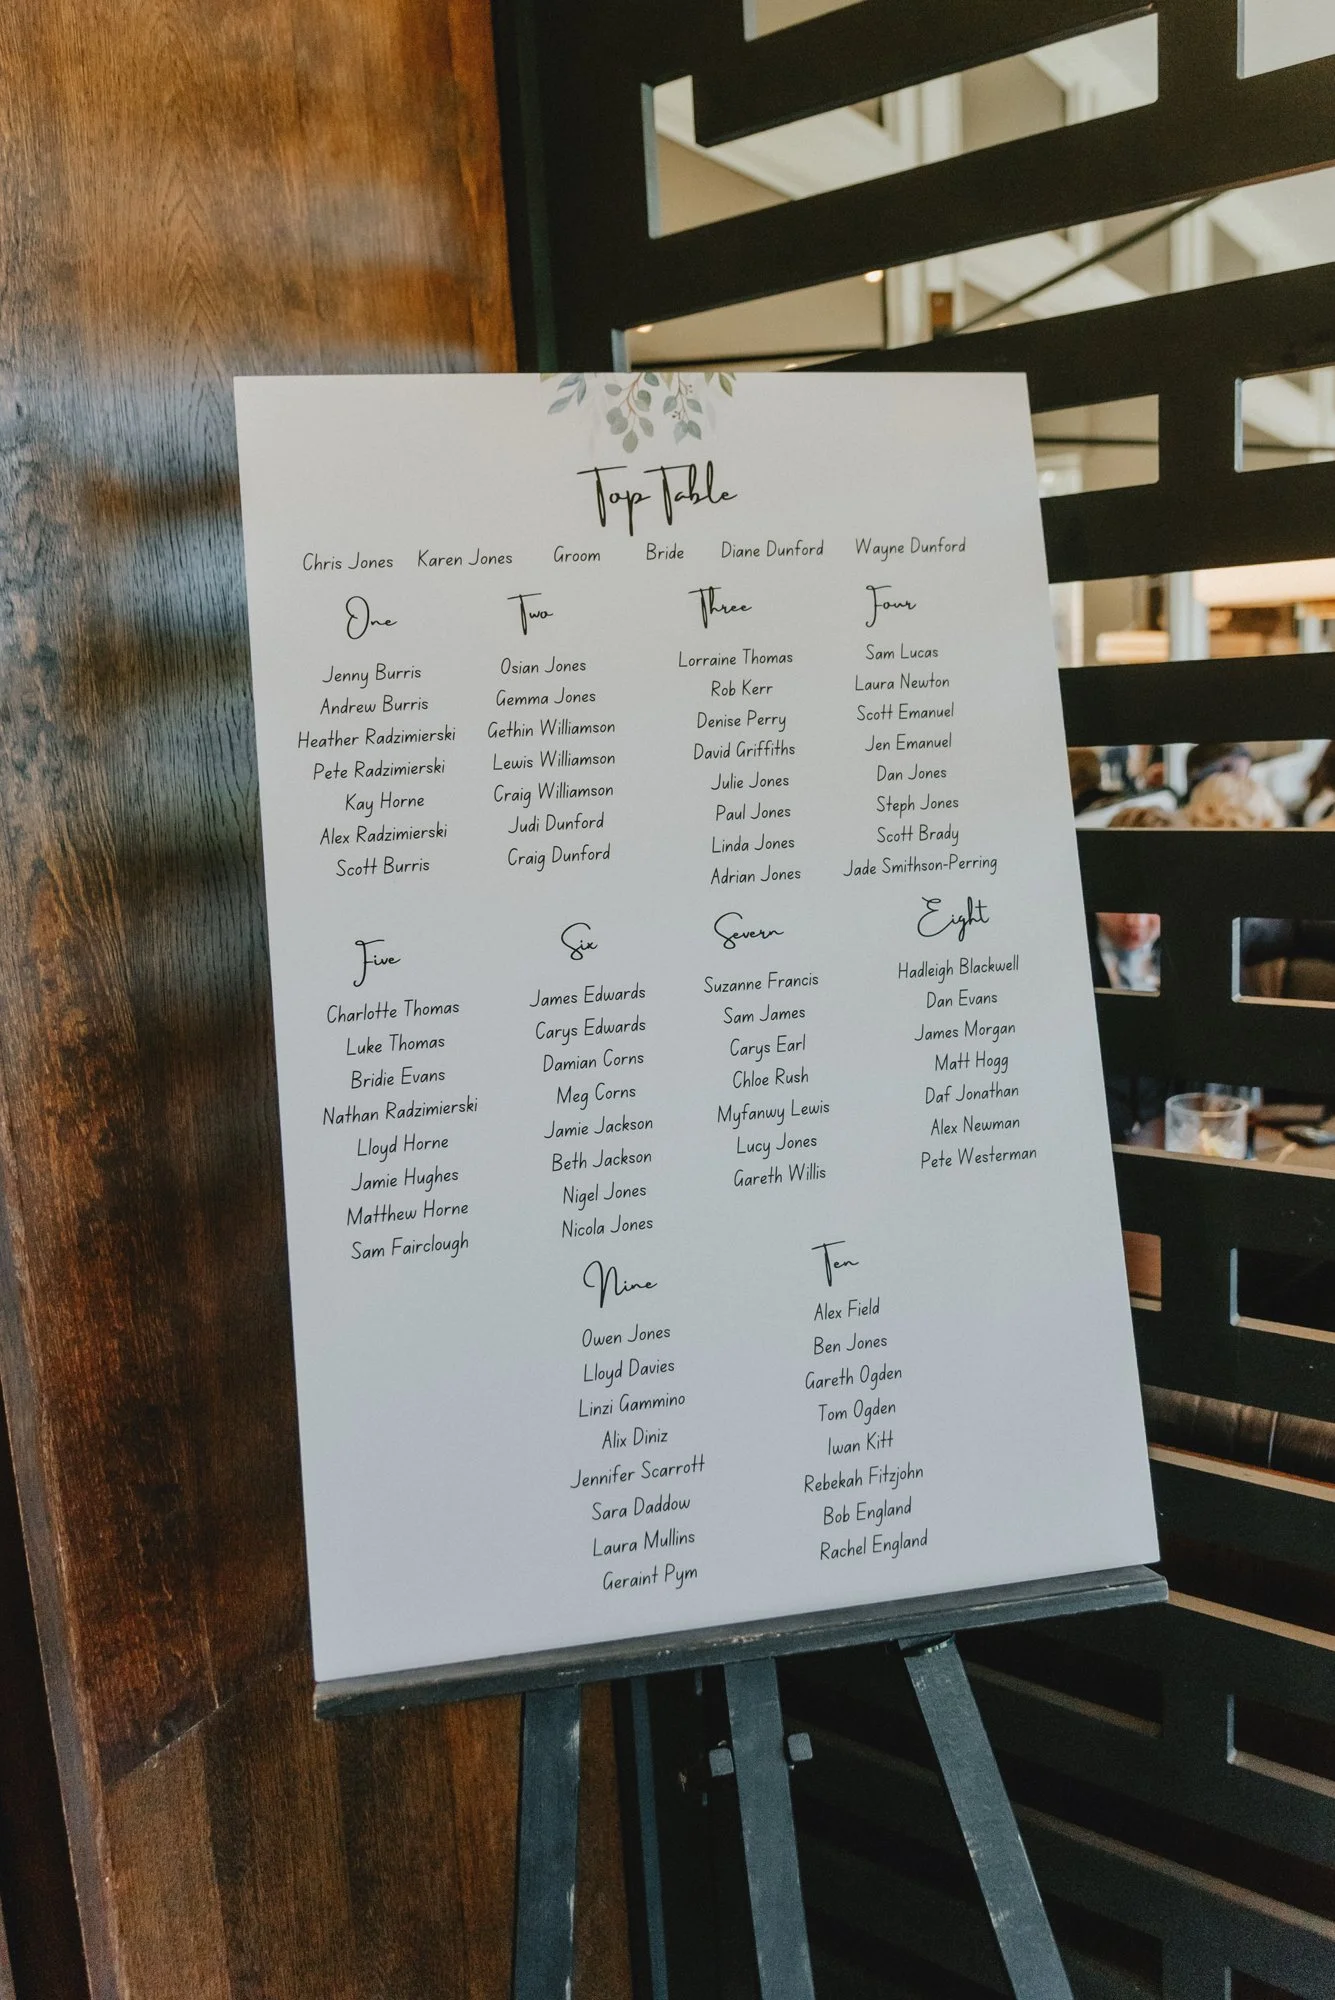 Top Table
Chris Jones Karen Jones Groom Bride Diane Dunford Wayne Dunford
One
Jenny Burris
Andrew Burris
Heather Radzimierski
Pete Radzimierski
Kay Horne
Alex Radzimierski
Scott Burris
Two
Osian Jones
Gemma Jones
Gethin Williamson
Lewis Williamson
Craig Williamson
Judi Dunford
Craig Dunford
Three
Lorraine Thomas
Rob Kerr
Denise Perry
David Griffiths
Julie Jones
Paul Jones
Linda Jones
Adrian Jones
Four
Sam Lucas
Laura Newton
Scott Emanuel
Jen Emanuel
Dan Jones
Steph Jones
Scott Brady
Jade Smithson-Perring
Five
Charlotte Thomas
Luke Thomas
Bridie Evans
Nathan Radzimierski
Lloyd Horne
Jamie Hughes
Matthew Horne
Sam Fairclough
Six
James Edwards
Carys Edwards
Damian Corns
Meg Corns
Jamie Jackson
Beth Jackson
Nigel Jones
Nicola Jones
Severn
Suzanne Francis
Sam James
Carys Earl
Chloe Rush
Myfanwy Lewis
Lucy Jones
Gareth Willis
Eight
Hadleigh Blackwell
Dan Evans
James Morgan
Matt Hogg
Daf Jonathan
Alex Newman
Pete Westerman
Nine
Owen Jones
Lloyd Davies
Linzi Gammino
Alix Diniz
Jennifer Scarrott
Sara Daddow
Laura Mullins
Geraint Pym
Ten
Alex Field
Ben Jones
Gareth Ogden
Tom Ogden
Iwan Kitt
Rebekah Fitzjohn
Bob England
Rachel England